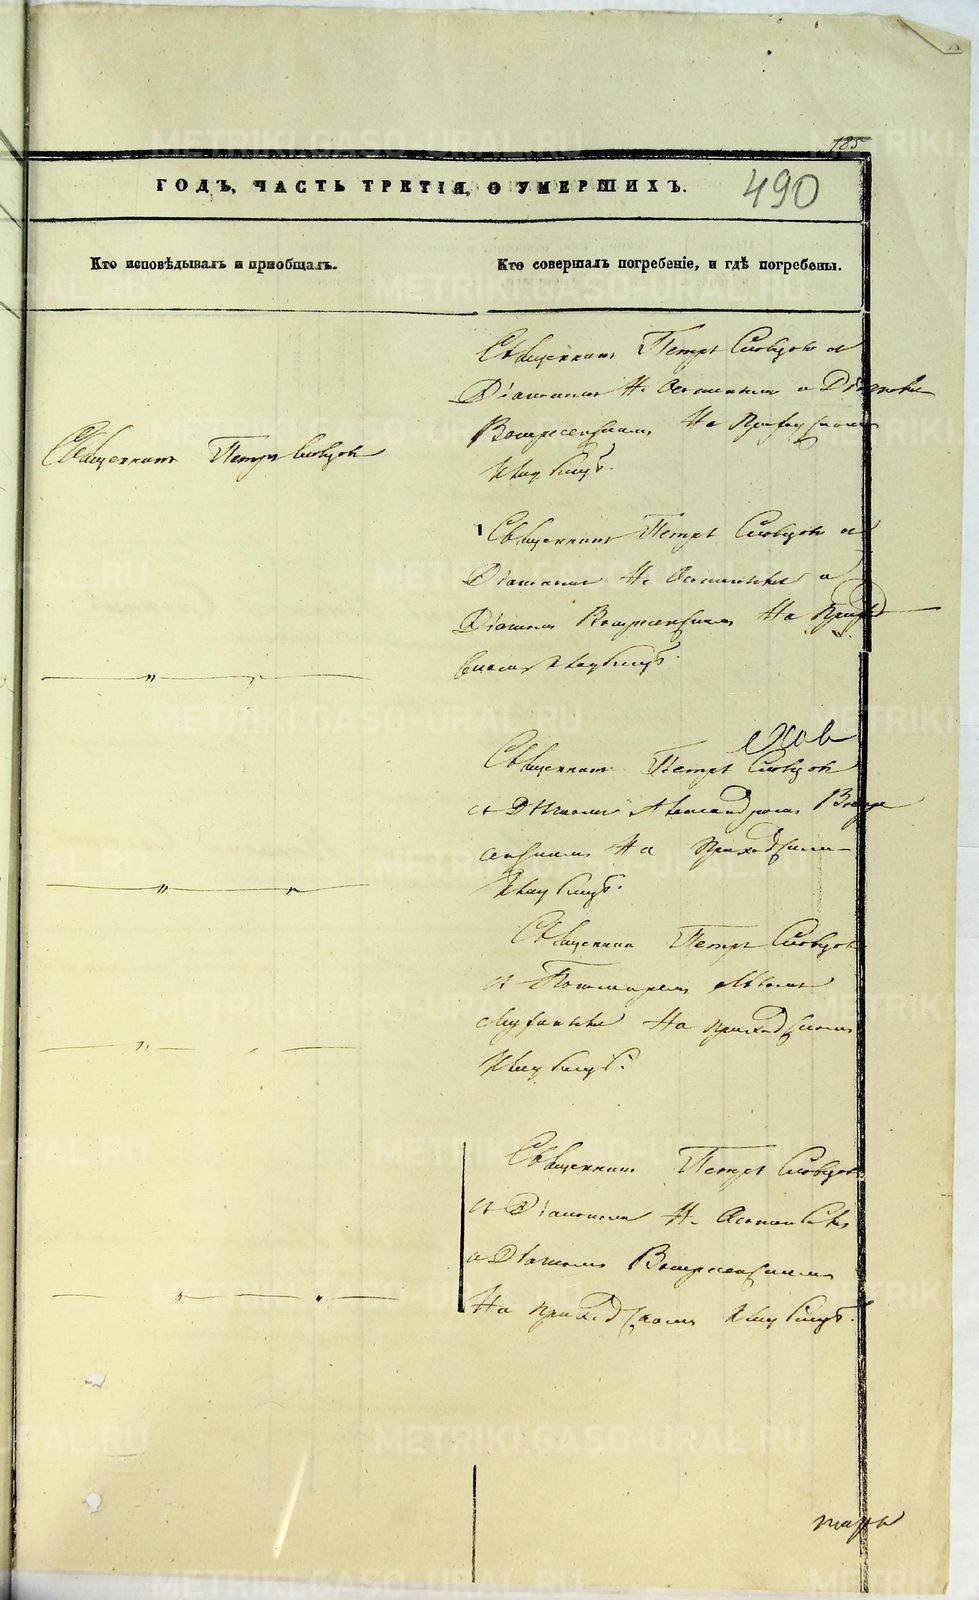 185
ГОДЪ, ЧАСТЬ ТРЕТІЯ, О УМЕРШИХЪ.
490
Кто исповѣдывалъ и приобщалъ.
Кто совершалъ погребеніе, и гдѣ погребены.
Священникъ Петръ Словцовъ
Священникъ Петръ Словцовъ съ
Діакономъ
Воскресенскимъ На Приходскомъ
Кладбищѣ.
Священникъ Петръ Словцовъ съ
Діакономъ
Дьячкомъ Воскресенскимъ На Приход
скомъ Кладбищѣ.
Священникъ Петръ Словцовъ
съ Дьячкомъ Александромъ Воскре
сенскимъ На Приходскомъ
Кладбищѣ.
Священникъ Петръ Словцовъ
съ Пономаремъ
На приходскомъ
Кладбищѣ.
Священникъ Петръ Словцовъ
съ Діакономъ
и Дьячкомъ Воскресенскимъ
На приходскомъ Кладбищѣ.
METRIKI.GASO-URAL.RU